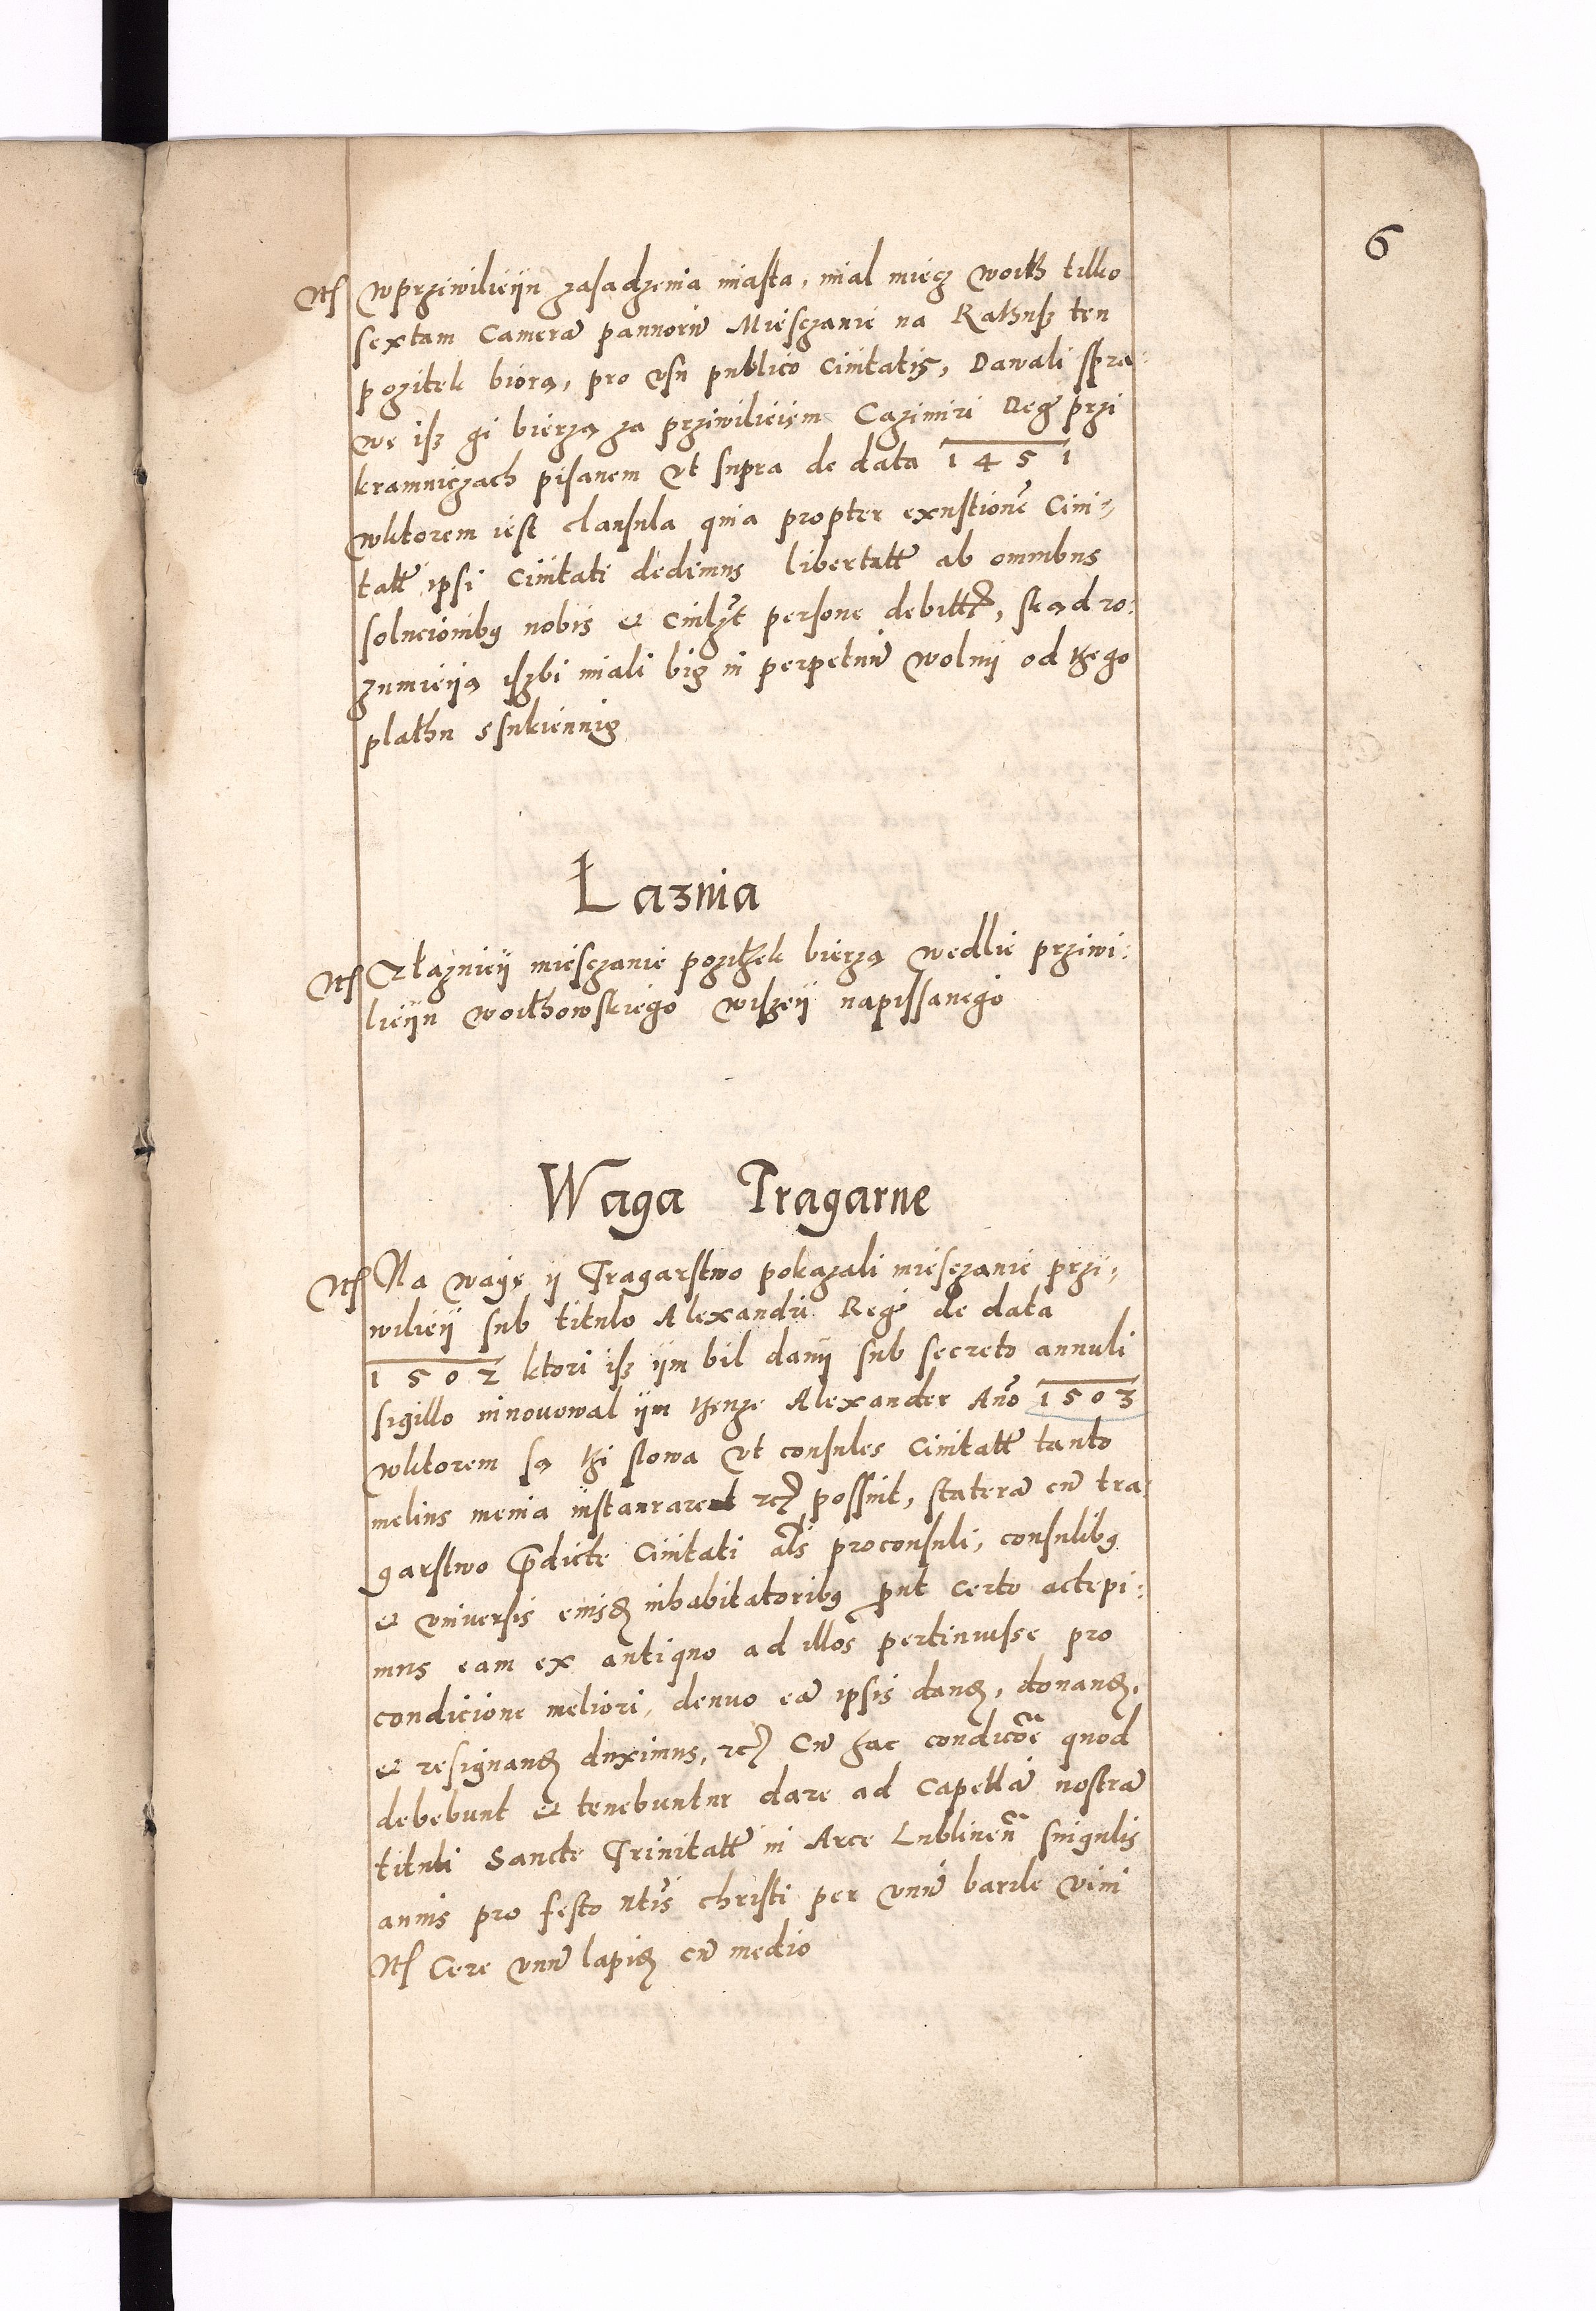 6
Nts wprziwilieiju zasadzenia miasta, mial miecz woith tilko
sextam Camerā pannorū Miesczanie na Rathusz ten
pozitek biorą, pro vsu publico Ciuitatis, Dawali spra-
wę isz gi bierzą za prziwilieiem Cazimiri Reg przi
kramniczach pisanem vt supra de data 1451
wktorem iest clausula quia propter exustionē Ciui-
tatē ipsi Ciuitati dedimus libertatē ab omnibus
solucionibus nobis et persone skąd ro-
zumieiją iszbi miali bicz in perpetuū wolnij od thego
plathu ssukiennicz
Łaznia
Nts Złazniej miesczanie pozithek bierzą wedlie prziwi-
lieiju woithowskiego wiszeij napissanego
Waga Tragarne
Nts Na wagę ij Tragarstwo pokazali miesczanie przi-
wilieij sub titulo Alexandri Reg de data
1502 ktori isz ijm bil danij sub secreto annuli
sigillo innovowal ijm thenze Alexander Año 1503
wktorem są thi slowa vt consules Ciuitatē tanto
melius menia instaurarent etc possint, staterā cū tra-
garstwo p̄dicte Ciuitati als proconsuli, consulibus
et vniversis inhabitatoribus p̄ut certo accepi-
mus eam ex antiquo ad illos pertinuisse pro
condicione meliori, denuo eā ipsis dand, donand,
et resignand duximus, etc Cū hac condicōē quod
debebunt et tenebuntur dare ad Capellā nostrā
tituli Sancte Trinitatē in Arce Lublinen̄ singulis
annis pro festo Ntis christi per vnū barile vini
Nts Cere vnū lapid cū medio